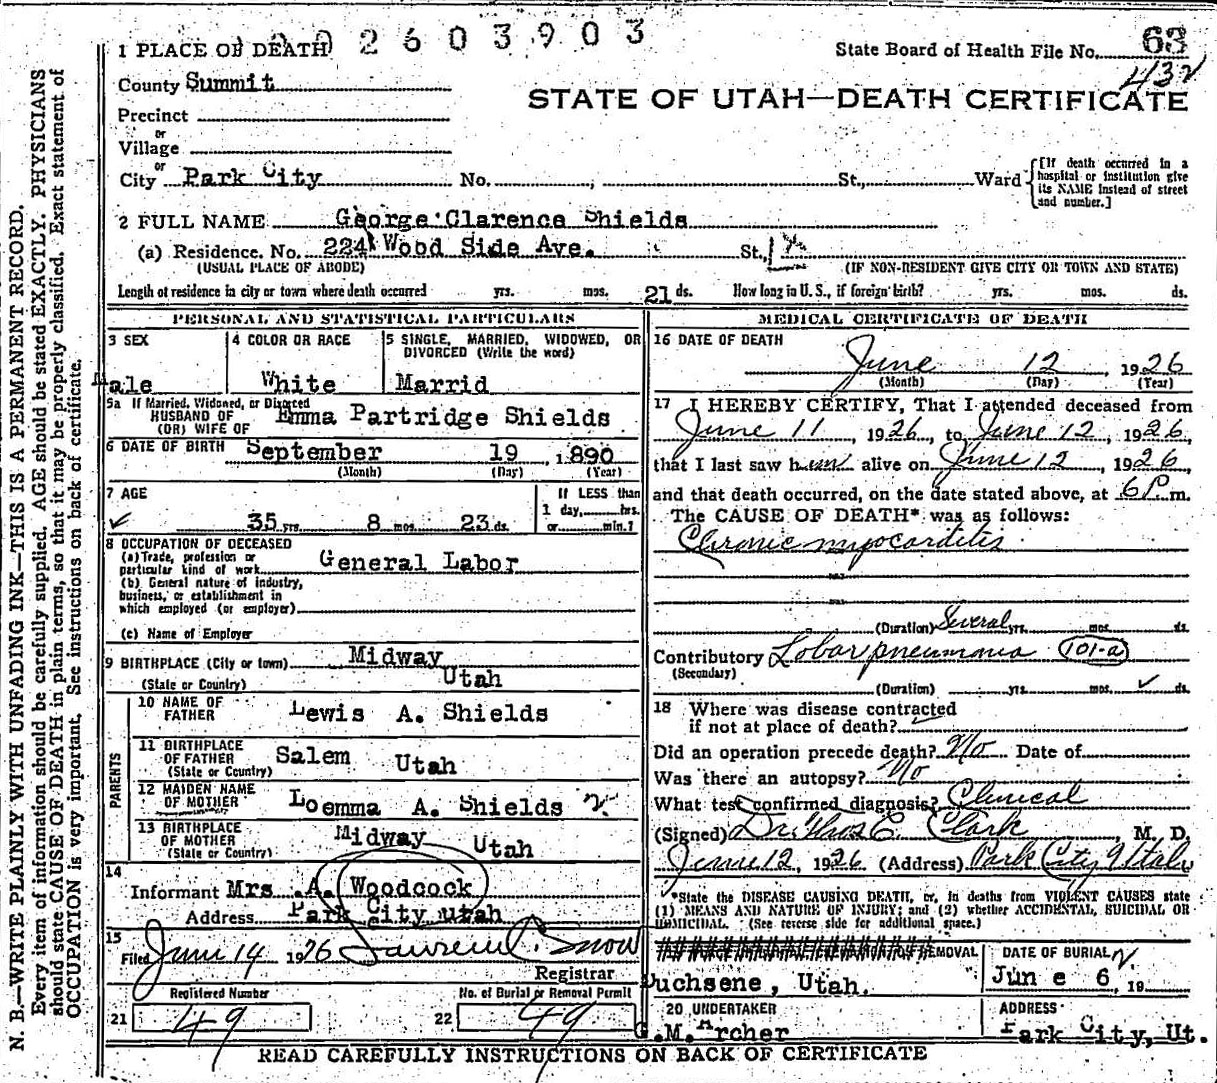 2603903
1 PLACE OF DEATH
State Board of Health File No. 63
432
County Summit
STATE OF UTAH—DEATH CERTIFICATE
Precinct
or
Village
or
City Park City No. , St., Ward
[If death occurred in a hospital or institution give its NAME instead of street and number.]
2 FULL NAME George Clarence Shields
(a) Residence. No. 224 Wood Side Ave. St.,
(USUAL PLACE OF ABODE) (IF NON-RESIDENT GIVE CITY OR TOWN AND STATE)
Length of residence in city or town where death occurred yrs. mos. 21 ds. How long in U. S., if foreign birth? yrs. mos. ds.
PERSONAL AND STATISTICAL PARTICULARS
3 SEX
Male
4 COLOR OR RACE
White
5 SINGLE, MARRIED, WIDOWED, OR DIVORCED (Write the word)
Marrid
5a If Married, Widowed, or Divorced
HUSBAND OF
(OR) WIFE OF
Emma Partridge Shields
6 DATE OF BIRTH September 19, 1890
(Month) (Day) (Year)
7 AGE
35 yrs. 8 mos. 23 ds.
If LESS than
1 day, hrs.
or min.?
8 OCCUPATION OF DECEASED
(a) Trade, profession or
particular kind of work General Labor
(b) General nature of industry,
business, or establishment in
which employed (or employer)
(c) Name of Employer
9 BIRTHPLACE (City or town) Midway
(State or Country) Utah
PARENTS
10 NAME OF
FATHER Lewis A. Shields
11 BIRTHPLACE
OF FATHER
(State or Country) Salem Utah
12 MAIDEN NAME
OF MOTHER Loemma A. Shields
13 BIRTHPLACE
OF MOTHER
(State or Country) Midway Utah
14
Informant Mrs .A. Woodcock
Address Park City utah
15
Filed June 14 1926
Registrar
Registered Number
21 49
No. of Burial or Removal Permit
22 49
MEDICAL CERTIFICATE OF DEATH
16 DATE OF DEATH
June 12, 1926
(Month) (Day) (Year)
17 I HEREBY CERTIFY, That I attended deceased from
June 11, 1926, to June 12, 1926,
that I last saw him alive on June 12, 1926
and that death occurred, on the date stated above, at 6 P. m.
The CAUSE OF DEATH* was as follows:
Chronic myocarditis
(Duration) Several yrs. mos. ds.
Contributory Lobar pneumonia 101-a
(Secondary)
(Duration) yrs. mos. ds.
18 Where was disease contracted
if not at place of death?
Did an operation precede death? No Date of
Was there an autopsy? No
What test confirmed diagnosis? Clinical
(Signed) Dr. C. Clark, M. D.
June 12, 1926 (Address) Park City
*State the DISEASE CAUSING DEATH, or, in deaths from VIOLENT CAUSES state
(1) MEANS AND NATURE OF INJURY; and (2) whether ACCIDENTAL, SUICIDAL OR
HOMICIDAL. (See reverse side for additional space.)
REMOVAL
Duchsene, Utah.
DATE OF BURIAL
June 6, 19
20 UNDERTAKER
G.M. Archer
ADDRESS
Park City, Ut.
READ CAREFULLY INSTRUCTIONS ON BACK OF CERTIFICATE
N. B.—WRITE PLAINLY WITH UNFADING INK—THIS IS A PERMANENT RECORD.
Every item of information should be carefully supplied. AGE should be stated EXACTLY. PHYSICIANS
should state CAUSE OF DEATH in plain terms, so that it may be properly classified. Exact statement of
OCCUPATION is very important. See instructions on back of certificate.